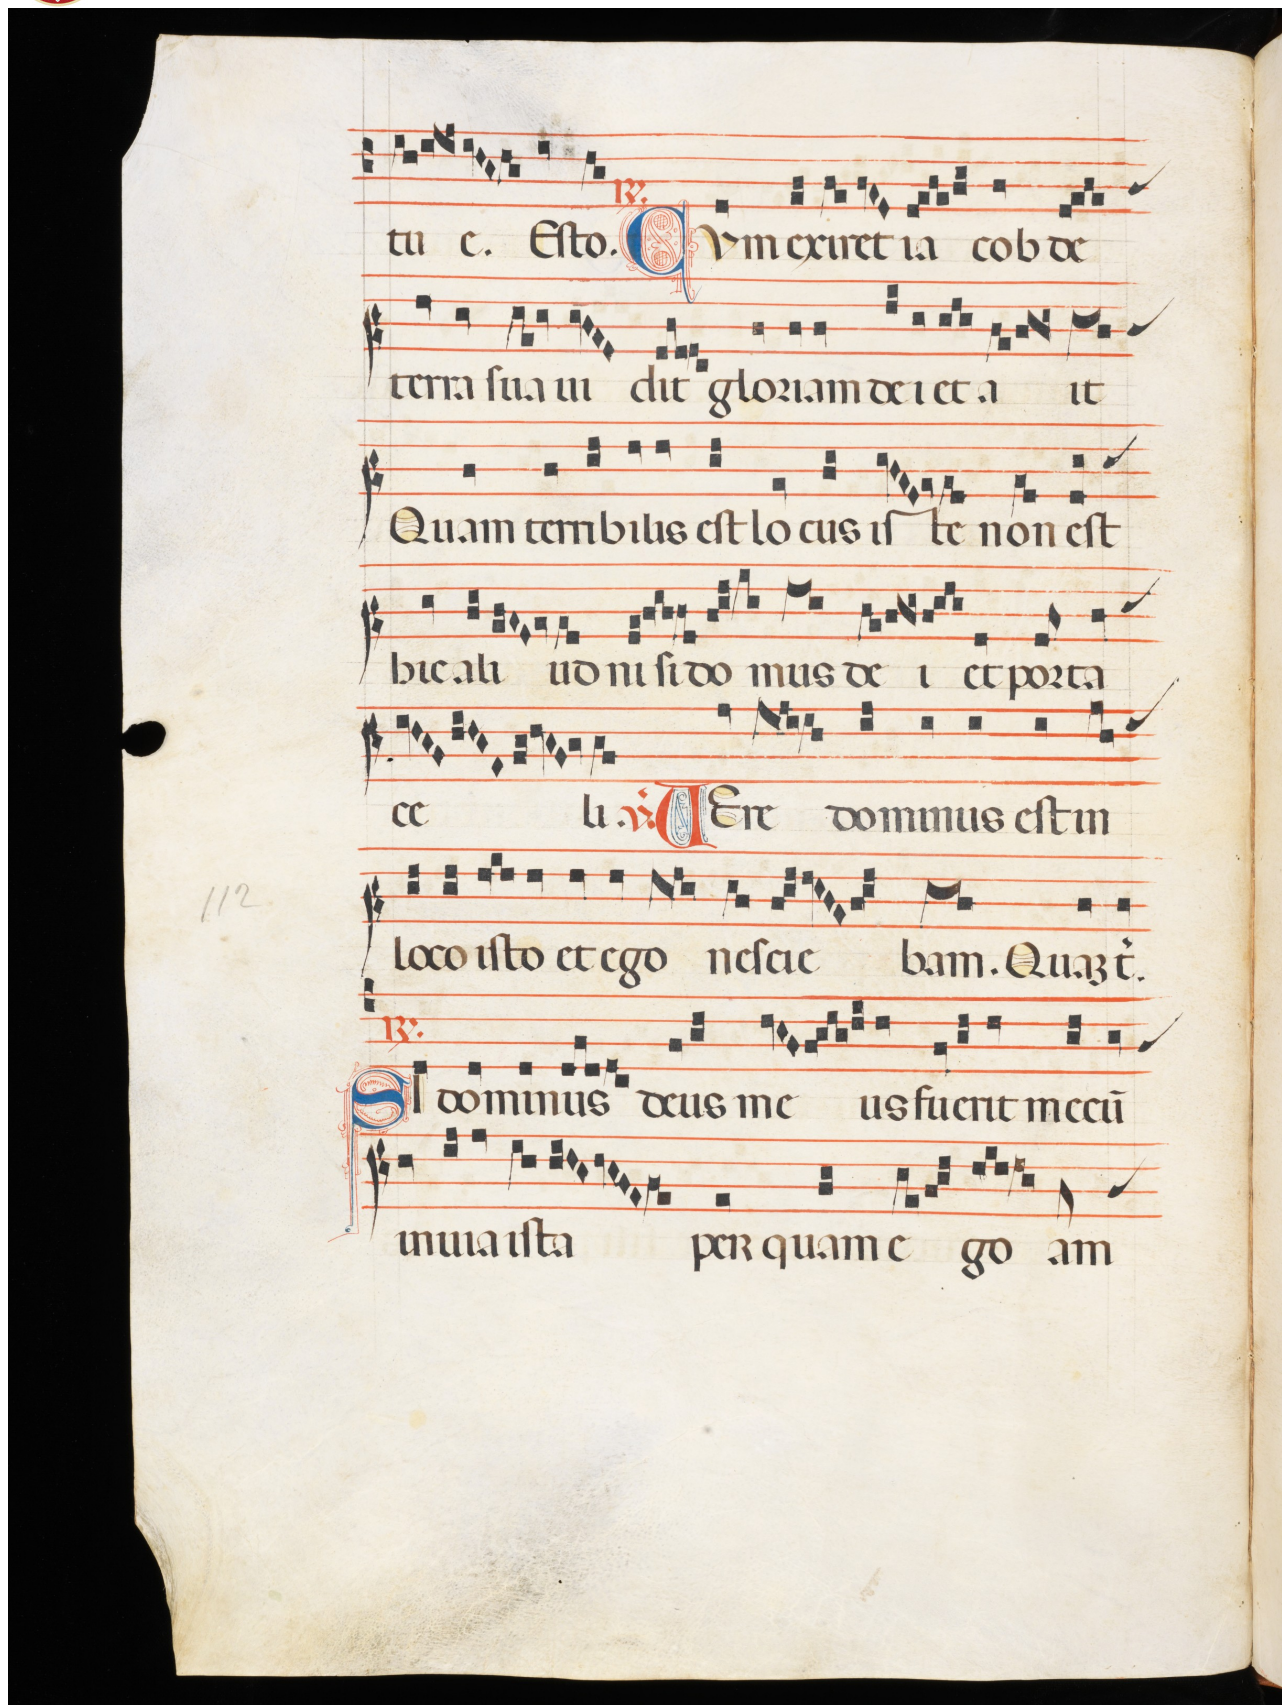 tu e. Esto. ℟. Cvm exiret ia cob de
terra sua ui dit gloriam dei et a it
Quam terribilis est locus is te non est
hic ali ud nisi do mus de i et porta
ce li. ℣. VEre dominus est in
loco isto et ego nescie bam. Quaꝫ t̉.
℟.
SI dominus deus me us fuerit mecū
in uia ista per quam e go am
112